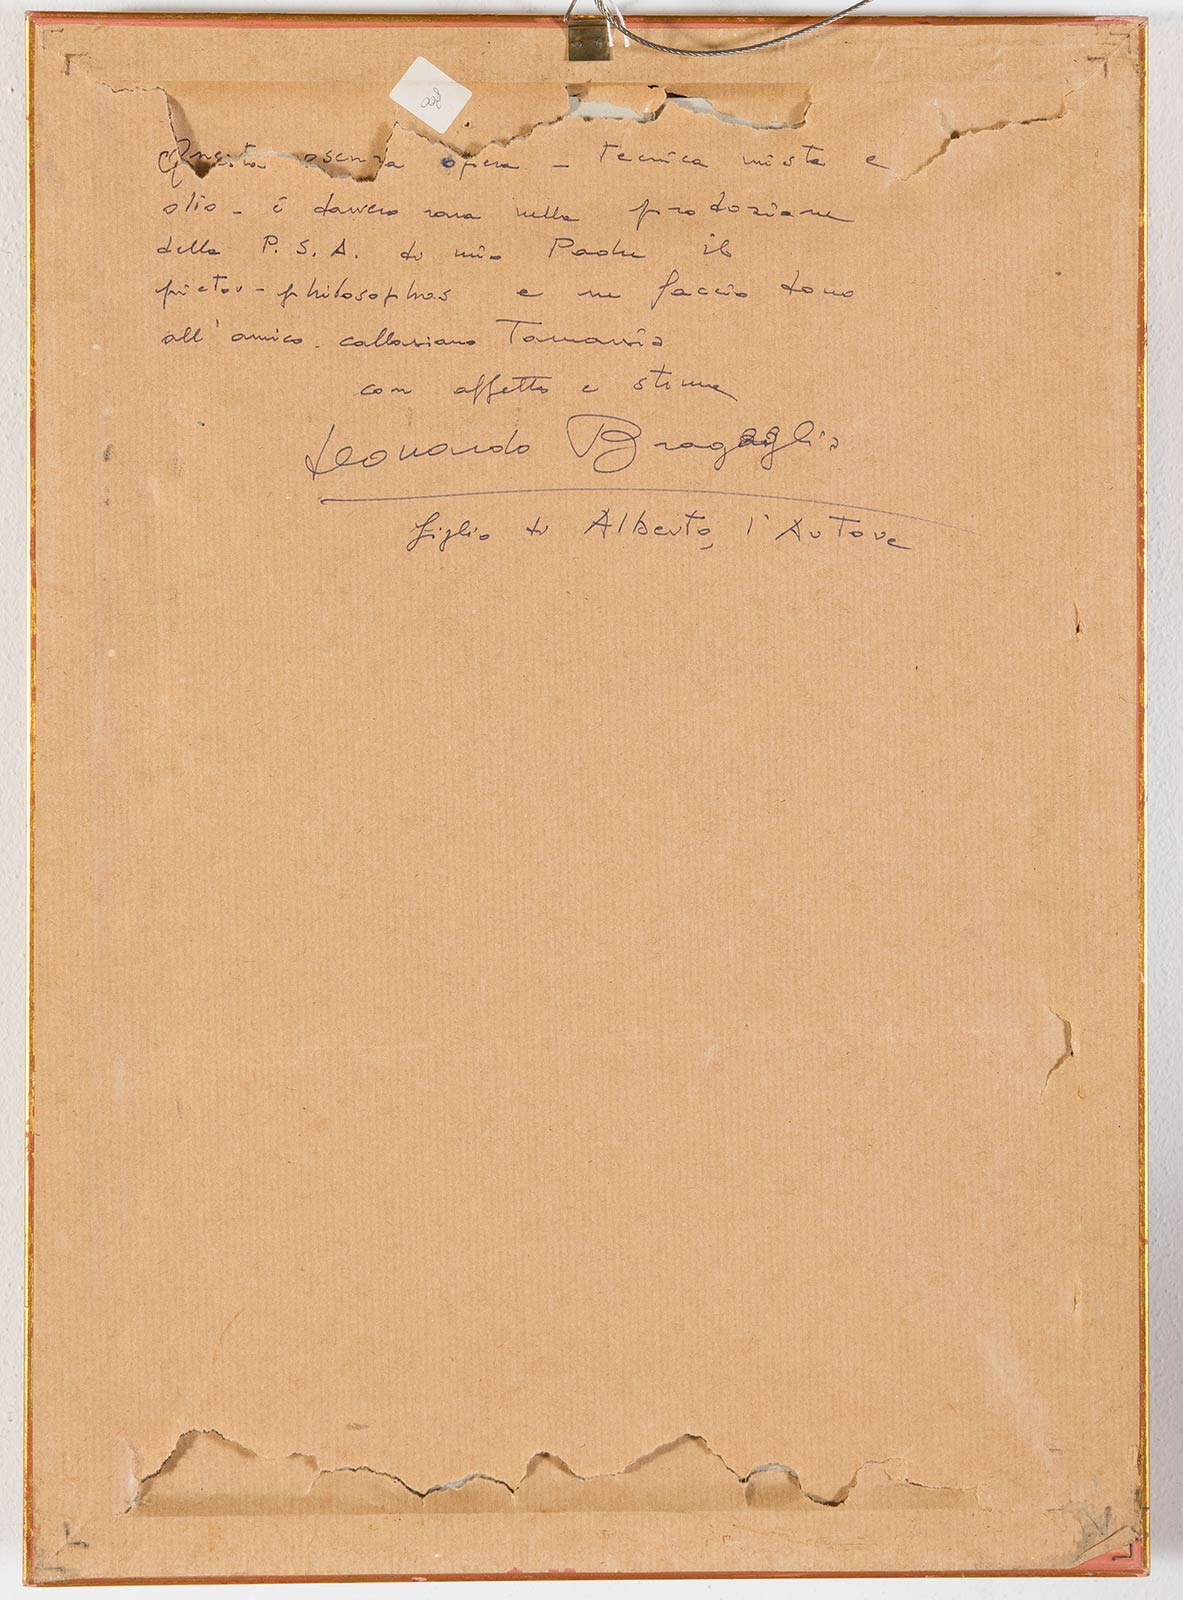 Questa opera - tecnica mista e
olio - è davvero rara nella produzione
della P.S.A. di mio Padre il
pictor-philosophus e ne faccio dono
all'amico collezionista
con affetto e stima
Leonardo Bragaglia
figlio di Alberto, l'Autore